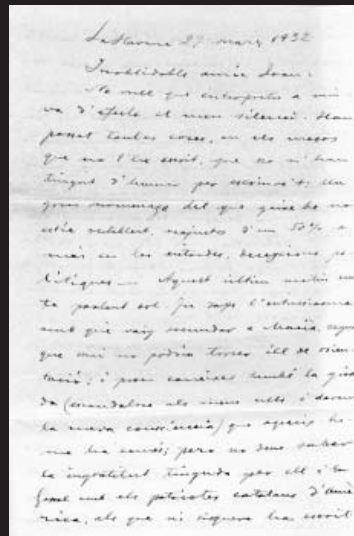 La Havana 27 març 1932
Inoblidable amic Joan:
No vull que interpretis a mi
va d'afecte el meu silenci. Han
passat tantes coses, en els mesos
que no t'he escrit, que no n'he
tingut d'humor per escriure't; un
gros del que gaire bé no
estic restablert, d'un 50% a
més en les entrades, decepcions po
lítiques — Aquest últim motiu
te parlant sol. Ja saps l'entusiasme
amb que vaig secundar a Macià,
que mai no podria torcer ell de orien
tació; i prou coneixes també la
da (escandalosa als meus ulls i davant
la meva consciència) que aqueix ho
me ha comès; pero no deus saber
la ingratitut tinguda per ell i
amb els patriotes catalans d'Amè
rica, als que ni siquera ha escrit